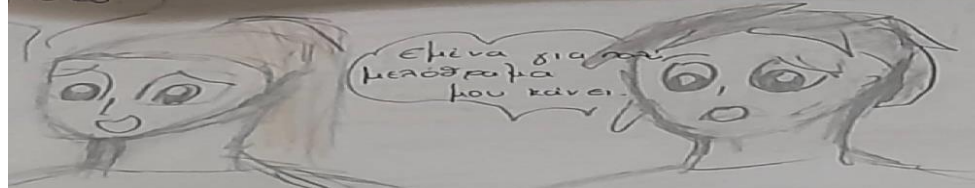 εμένα για
μελόδραμα
μου κάνει.